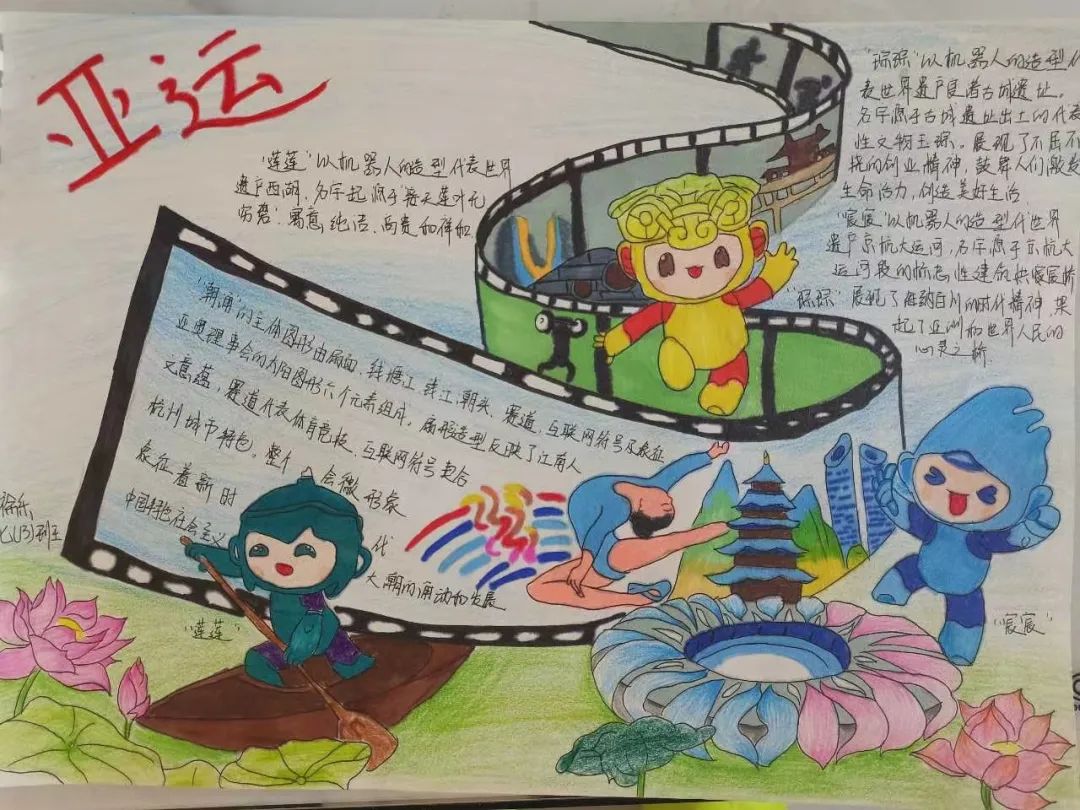 亚运
"莲莲"以机器人的造型代表世界
遗产西湖，名字起源于"接天莲叶无
穷碧"寓意纯洁、高贵和祥和
"琮琮"以机器人的造型代
表世界遗产良渚古城遗址。
名字源于古城遗址出土的代表
性文物玉琮。展现了不屈不
挠的创业精神，鼓舞人们激发
生命活力，创造美好生活
"宸宸"以机器人的造型代世界
遗产京杭大运河，名字源于京杭大
运河段的标志性建筑拱宸桥
展现了海纳百川的时代精神，架
起了亚洲和世界人民的
心灵之桥
"琮琮"
"潮涌"的主体图形由扇面、钱塘江、钱江潮头、赛道、互联网符号及象征
亚奥理事会的太阳图形六个元素组成，扇形造型反映了江南人
文意蕴，赛道代表体育竞技，互联网符号契合
杭州城市特色。整个会徽形象
象征着新时代
中国特色社会主义
大潮的涌动和发展
"莲莲"
"宸宸"